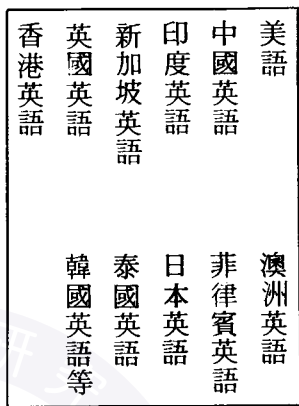 美語
中國英語
印度英語
新加坡英語
英國英語
香港英語
澳洲英語
菲律賓英語
日本英語
泰國英語
韓國英語等